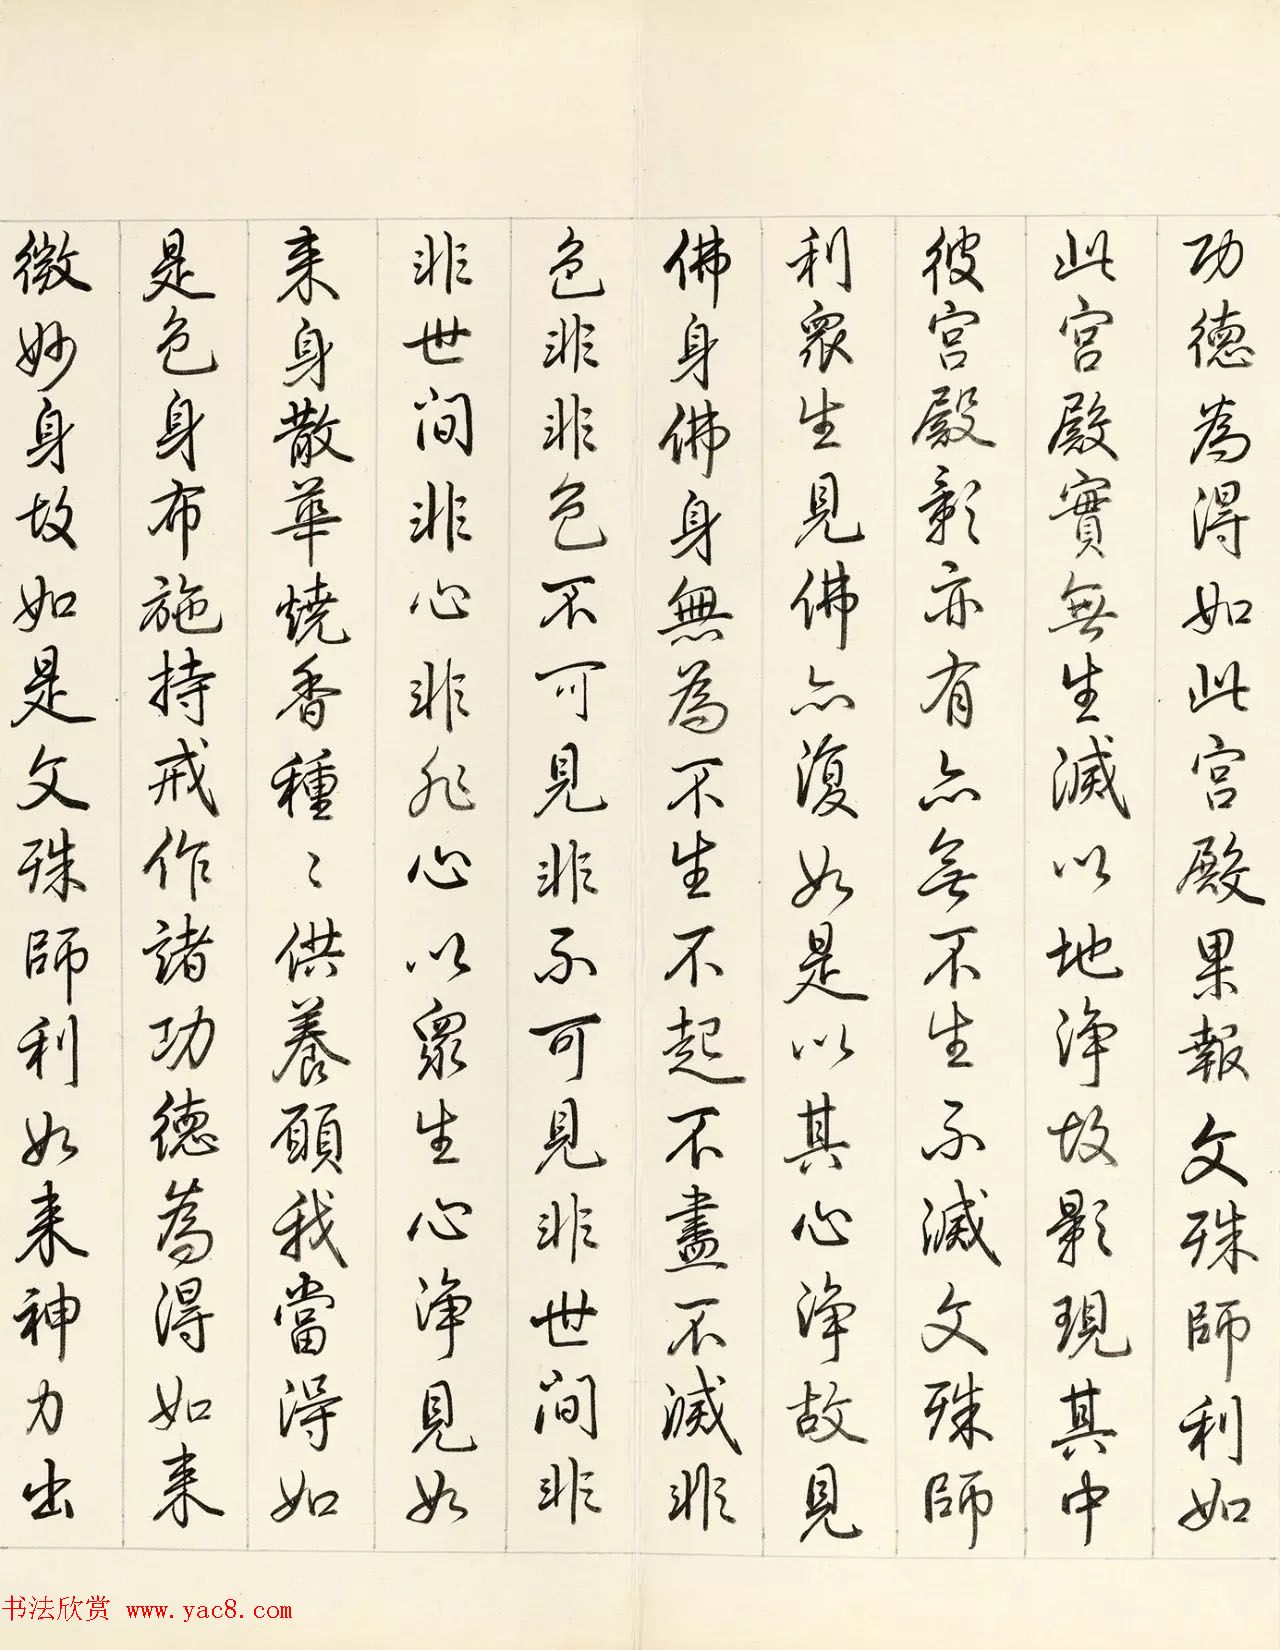 功德為得如此宮殿果報文殊師利如
此宮殿實無生滅以地淨故影現其中
彼宮殿影亦有亦無不生不滅文殊師
利眾生見佛亦復如是以其心淨故見
佛身佛身無為不生不起不盡不滅非
色非非色不可見非不可見非世間非
非世間非心非非心以眾生心淨見如
来身散華燒香種〻供養願我當得如
是色身布施持戒作諸功德為得如来
微妙身故如是文殊師利如来神力出
书法欣赏 www.yac8.com